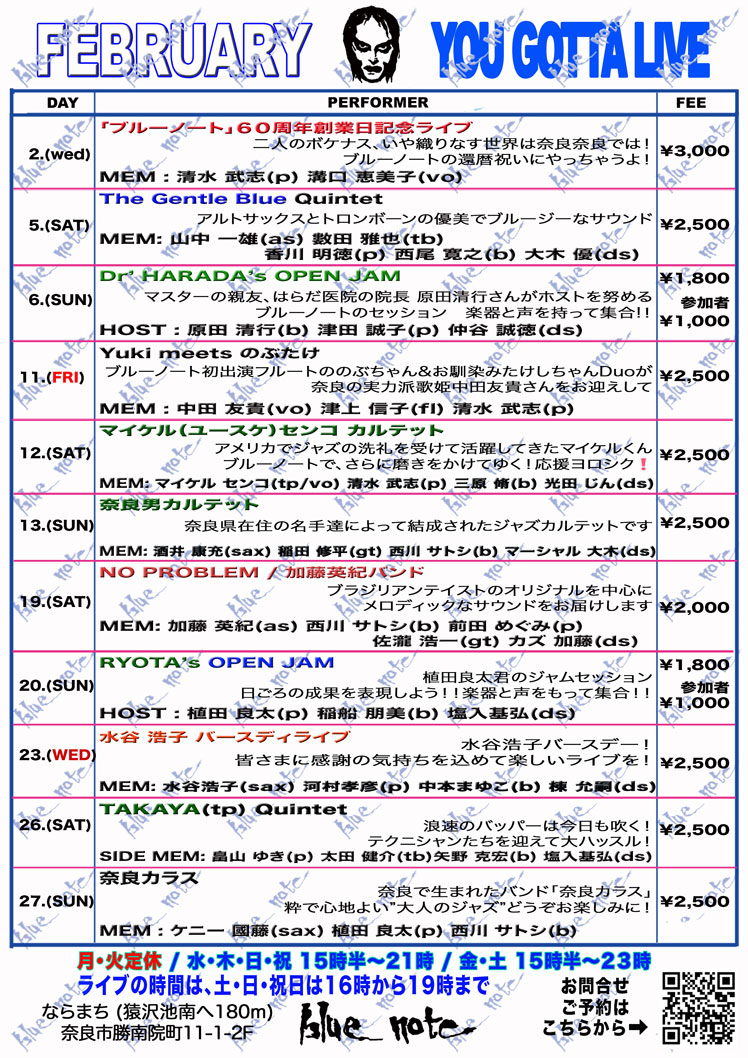 FEBRUARY YOU GOTTA LIVE
DAY PERFORMER FEE
2.(wed) 「ブルーノート」６０周年創業日記念ライブ ¥3,000
二人のボケナス、いや織りなす世界は奈良奈良では！
ブルーノートの還暦祝いにやっちゃうよ！
MEM : 清水 武志(p) 溝口 恵美子(vo)
5.(SAT) The Gentle Blue Quintet ¥2,500
アルトサックスとトロンボーンの優美でブルージーなサウンド
MEM: 山中 一雄(as) 數田 雅也(tb)
香川 明徳(p) 西尾 寛之(b) 大木 優(ds)
6.(SUN) Dr' HARADA's OPEN JAM ¥1,800
マスターの親友、はらだ医院の院長 原田清行さんがホストを努める 参加者
ブルーノートのセッション 楽器と声を持って集合！！ ¥1,000
HOST : 原田 清行(b) 津田 誠子(p) 仲谷 誠徳(ds)
11.(FRI) Yuki meets のぶたけ ¥2,500
ブルーノート初出演フルートののぶちゃん&お馴染みたけしちゃんDuoが
奈良の実力派歌姫中田友貴さんをお迎えして
MEM : 中田 友貴(vo) 津上 信子(fl) 清水 武志(p)
12.(SAT) マイケル(ユースケ)センコ カルテット ¥2,500
アメリカでジャズの洗礼を受けて活躍してきたマイケルくん
ブルーノートで、さらに磨きをかけてゆく！応援ヨロシク❗
MEM: マイケル センコ(tp/vo) 清水 武志(p) 三原 脩(b) 光田 じん(ds)
13.(SUN) 奈良男カルテット ¥2,500
奈良県在住の名手達によって結成されたジャズカルテットです
MEM: 酒井 康充(sax) 稲田 修平(gt) 西川 サトシ(b) マーシャル 大木(ds)
19.(SAT) NO PROBLEM / 加藤英紀バンド ¥2,000
ブラジリアンテイストのオリジナルを中心に
メロディックなサウンドをお届けします
MEM: 加藤 英紀(as) 西川 サトシ(b) 前田 めぐみ(p)
佐瀧 浩一(gt) カズ 加藤(ds)
20.(SUN) RYOTA's OPEN JAM ¥1,800
植田良太君のジャムセッション 参加者
日ごろの成果を表現しよう！！楽器と声をもって集合！！ ¥1,000
HOST : 植田 良太(p) 稲船 朋美(b) 塩入基弘(ds)
23.(WED) 水谷 浩子 バースディライブ ¥2,500
水谷浩子バースデー！
皆さまに感謝の気持ちを込めて楽しいライブを！
MEM: 水谷浩子(sax) 河村孝彦(p) 中本まゆこ(b) 棟 允嗣(ds)
26.(SAT) TAKAYA(tp) Quintet ¥2,500
浪速のバッパーは今日も吹く！
テクニシャンたちを迎えて大ハッスル！
SIDE MEM: 畠山 ゆき(p) 太田 健介(tb)矢野 克宏(b) 塩入基弘(ds)
27.(SUN) 奈良カラス ¥2,500
奈良で生まれたバンド「奈良カラス」
粋で心地よい"大人のジャズ"どうぞお楽しみに！
MEM : ケニー 國藤(sax) 植田 良太(p) 西川 サトシ(b)
月・火定休 / 水・木・日・祝 15時半〜21時 / 金・土 15時半〜23時
ライブの時間は、土・日・祝日は16時から19時まで
ならまち (猿沢池南へ180m)
奈良市勝南院町11-1-2F
blue note
お問合せ
ご予約は
こちらから➡